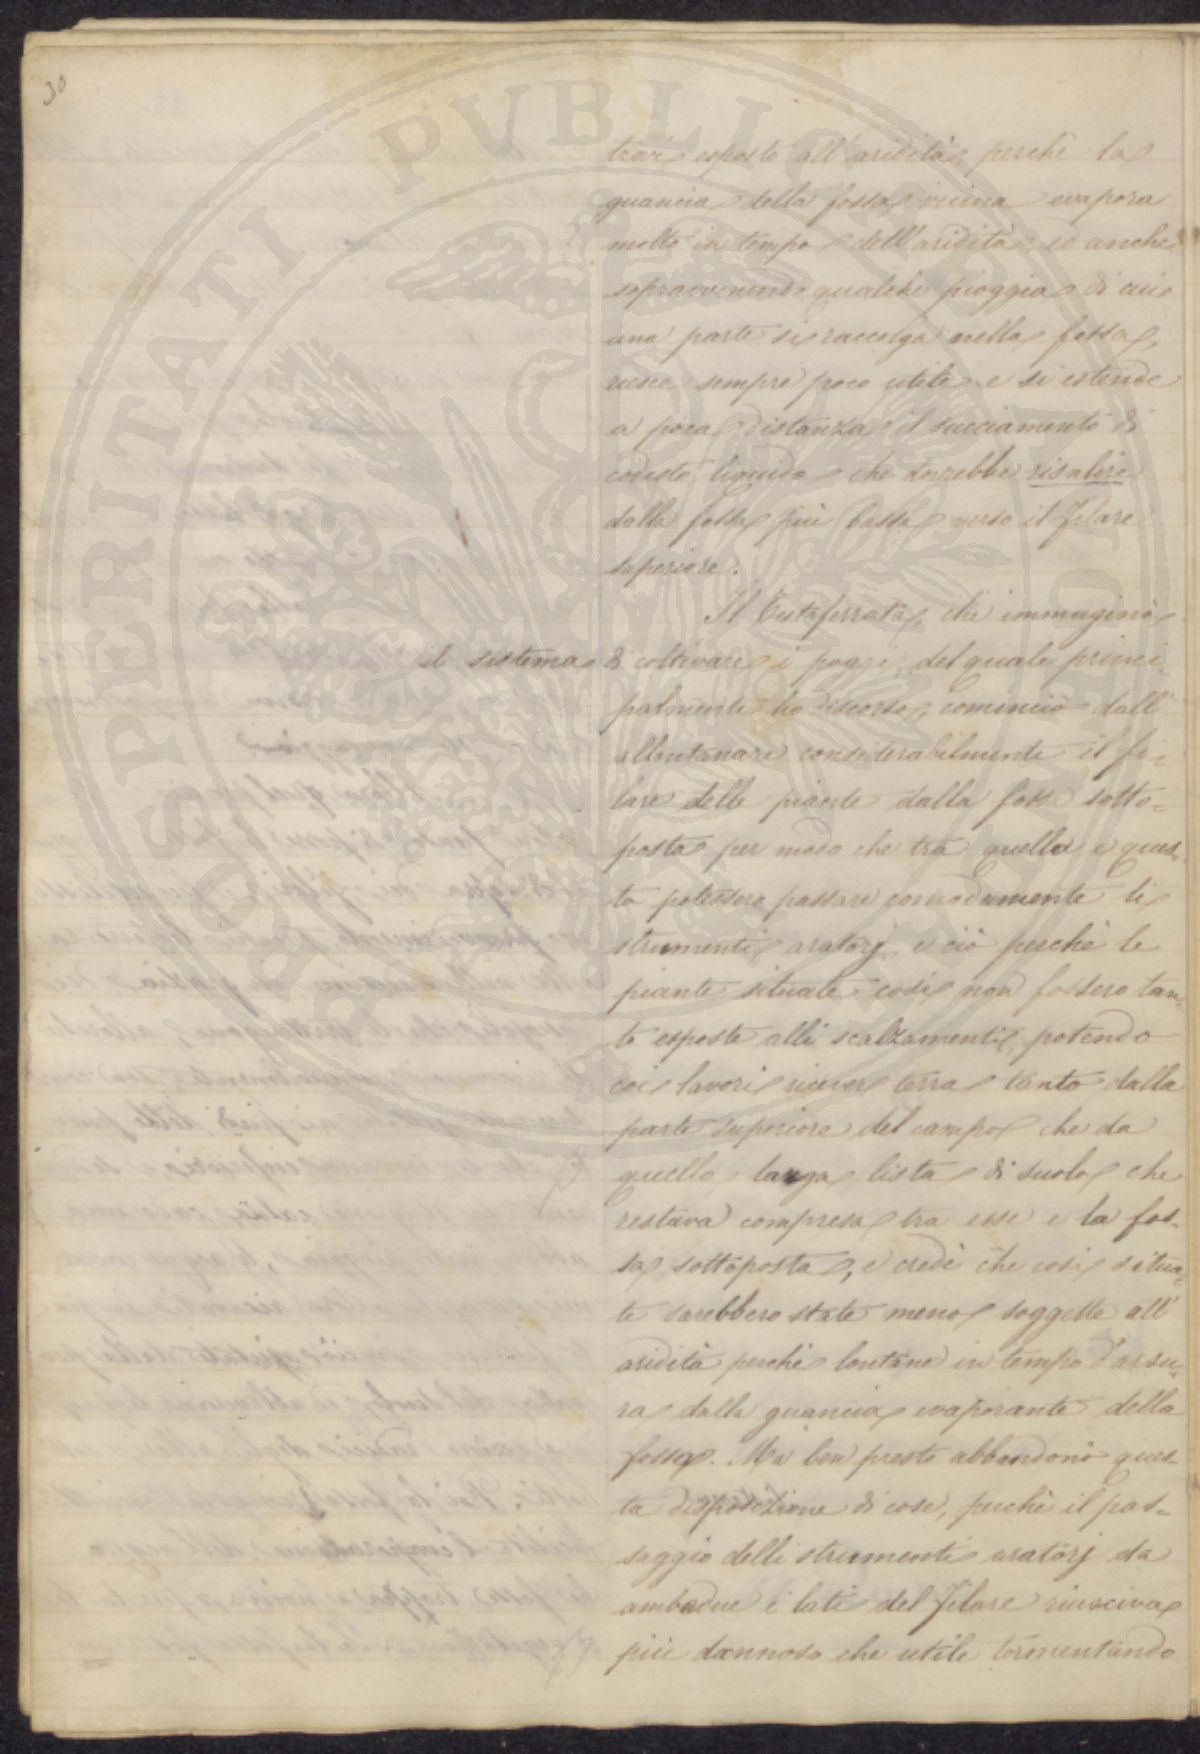 30
trovi esposto all'aridità perchè la
guancia della fossa vicina evapora
molto in tempo dell'aridità, ed anche
sopravvenendo qualche pioggia di cui
una parte si raccolga nella fossa,
riesce sempre poco utile e si estende
a poca distanza il succiamento di
codesto liquido che dovrebbe risalire
dalla fossa più bassa verso il filare
superiore.
Il Testaferrata, che immaginò
il sistema di coltivare i poggi, del quale princi-
palmente ho discorso, cominciò dall'
allontanare considerabilmente il fi-
lare delle piante dalla fossa sotto-
posta per modo che tra quella e ques-
ta potessero passare comodamente li
strumenti aratorj, e ciò perchè le
piante situate così non fossero tan-
te esposte alli scalzamenti, potendo
coi lavori ricever terra tanto dalla
parte superiore del campo che da
quella larga lista di suolo che
restava compresa tra esse e la fos-
sa sottoposta, e credè che così situa-
te sarebbero state meno soggette all'
aridità perchè lontane in tempo d'arsu-
ra dalla guancia evaporante della
fossa. Ma ben presto abbandonò ques-
ta disposizione di cose, perchè il pas-
saggio delli strumenti aratorj da
ambedue i lati del filare riusciva
più dannoso che utile tormentando
PROSPERITATI PUBLICAE AUGENDAE